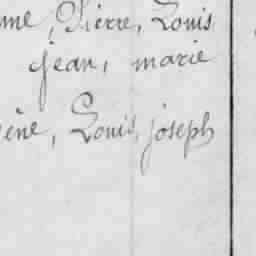 me, Pierre, Louis
jean, marie
ène, Louis, joseph